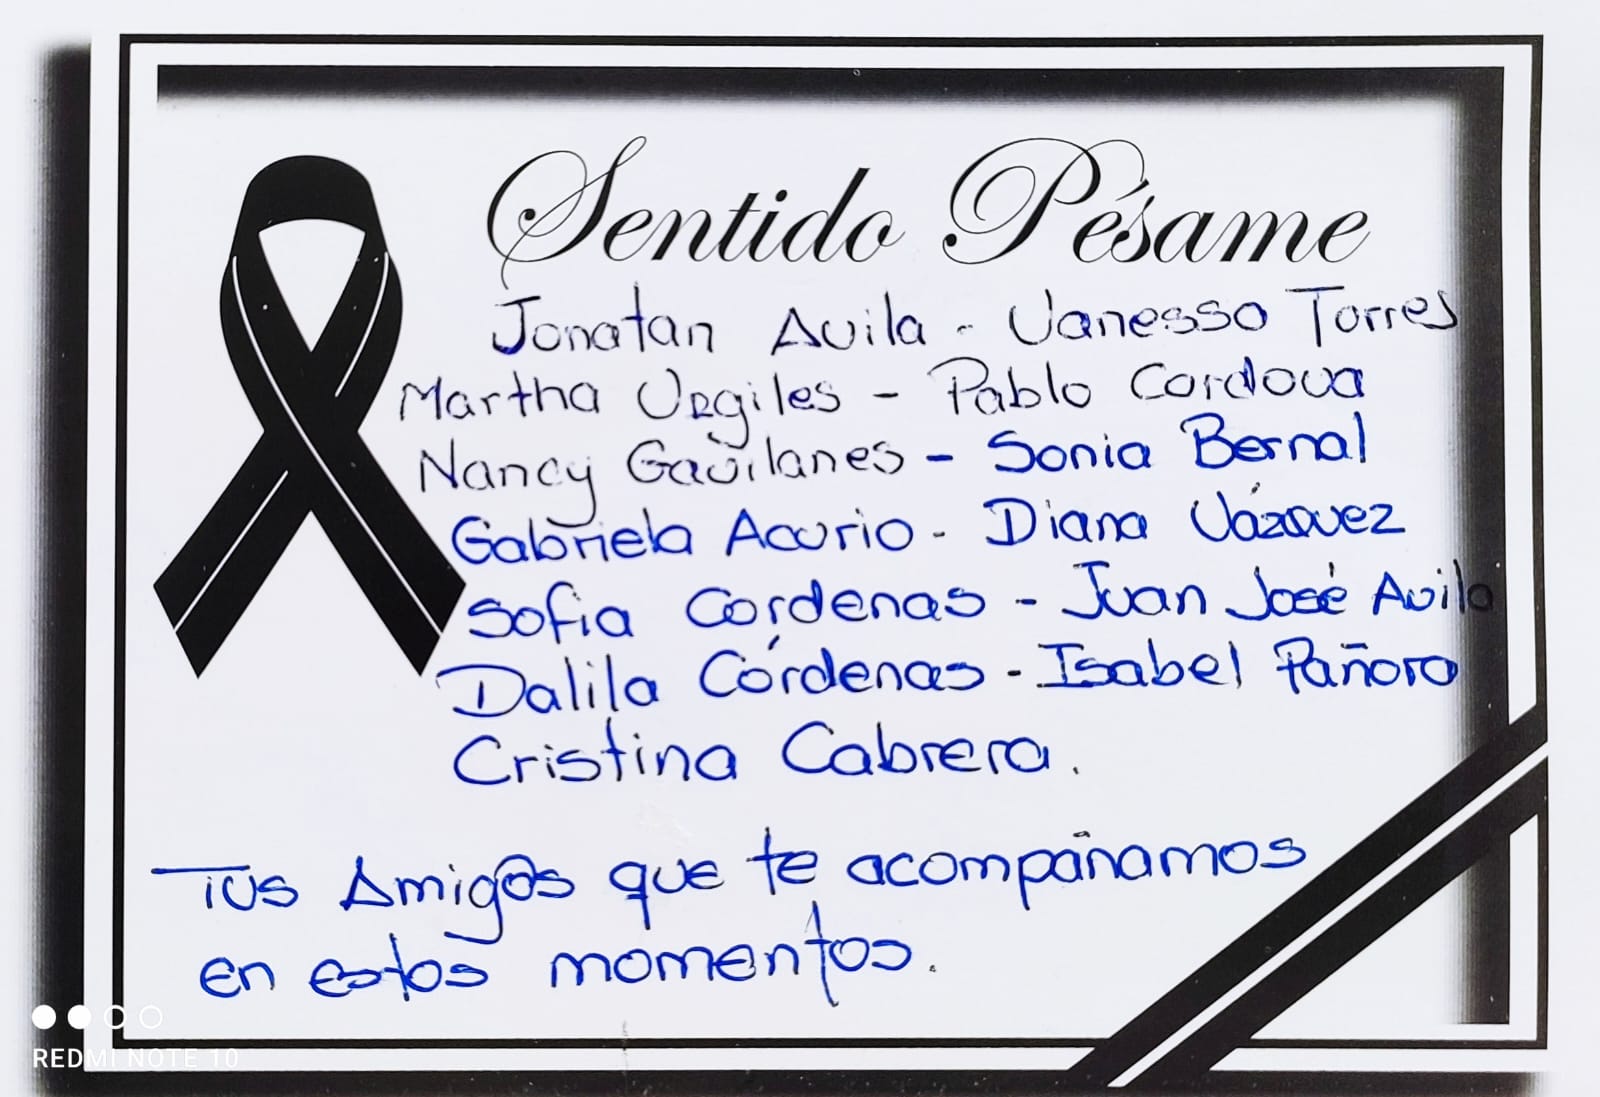 Sentido Pésame
Jonatan Avila - Vanessa Torres
Martha Urgiles - Pablo Cordova
Nancy Gavilanes - Sonia Bernal
Gabriela Acurio - Diana Vázquez
Sofia Cordenas - Juan José Avila
Dalila Córdenas - Isabel Pañora
Cristina Cabrera.
Tus Amig@s que te acompañamos
en estos momentos.
REDMI NOTE 10